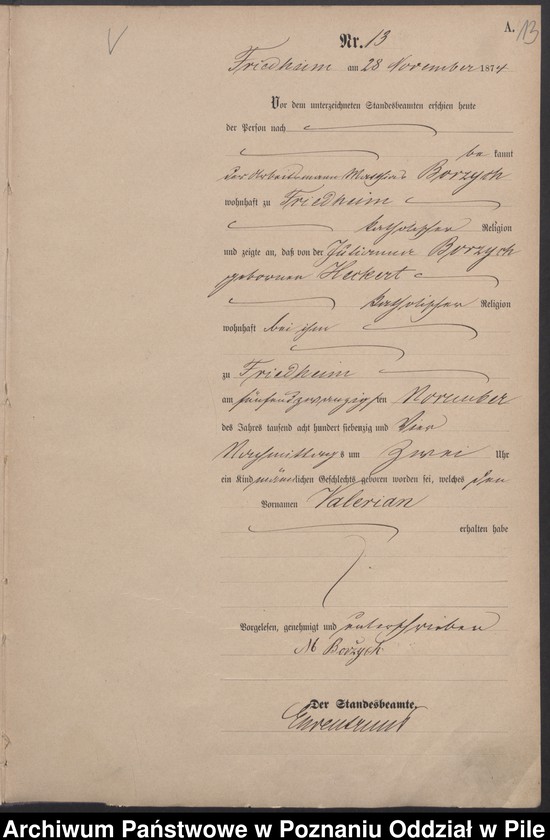 A.
13
Nr. 13
Friedheim am 28 November 1874
Vor dem unterzeichneten Standesbeamten erschien heute
der Person nach
be kannt
der Arbeitsmann Borzych
wohnhaft zu Friedheim
katholischer Religion
und zeigte an, daß von der Julianna Borzych
geborenen Heckert
katholischer Religion
wohnhaft bei ihm
zu Friedheim
am fünfundzwanzigsten November
des Jahres tausend acht hundert siebenzig und Vier
Nachmittags um Zwei Uhr
ein Kind männlichen Geschlechts geboren worden sei, welches den
Vornamen Valerian
erhalten habe
Vorgelesen, genehmigt und unterschrieben
M Borzych
Der Standesbeamte.
Archiwum Państwowe w Poznaniu Oddział w Pile